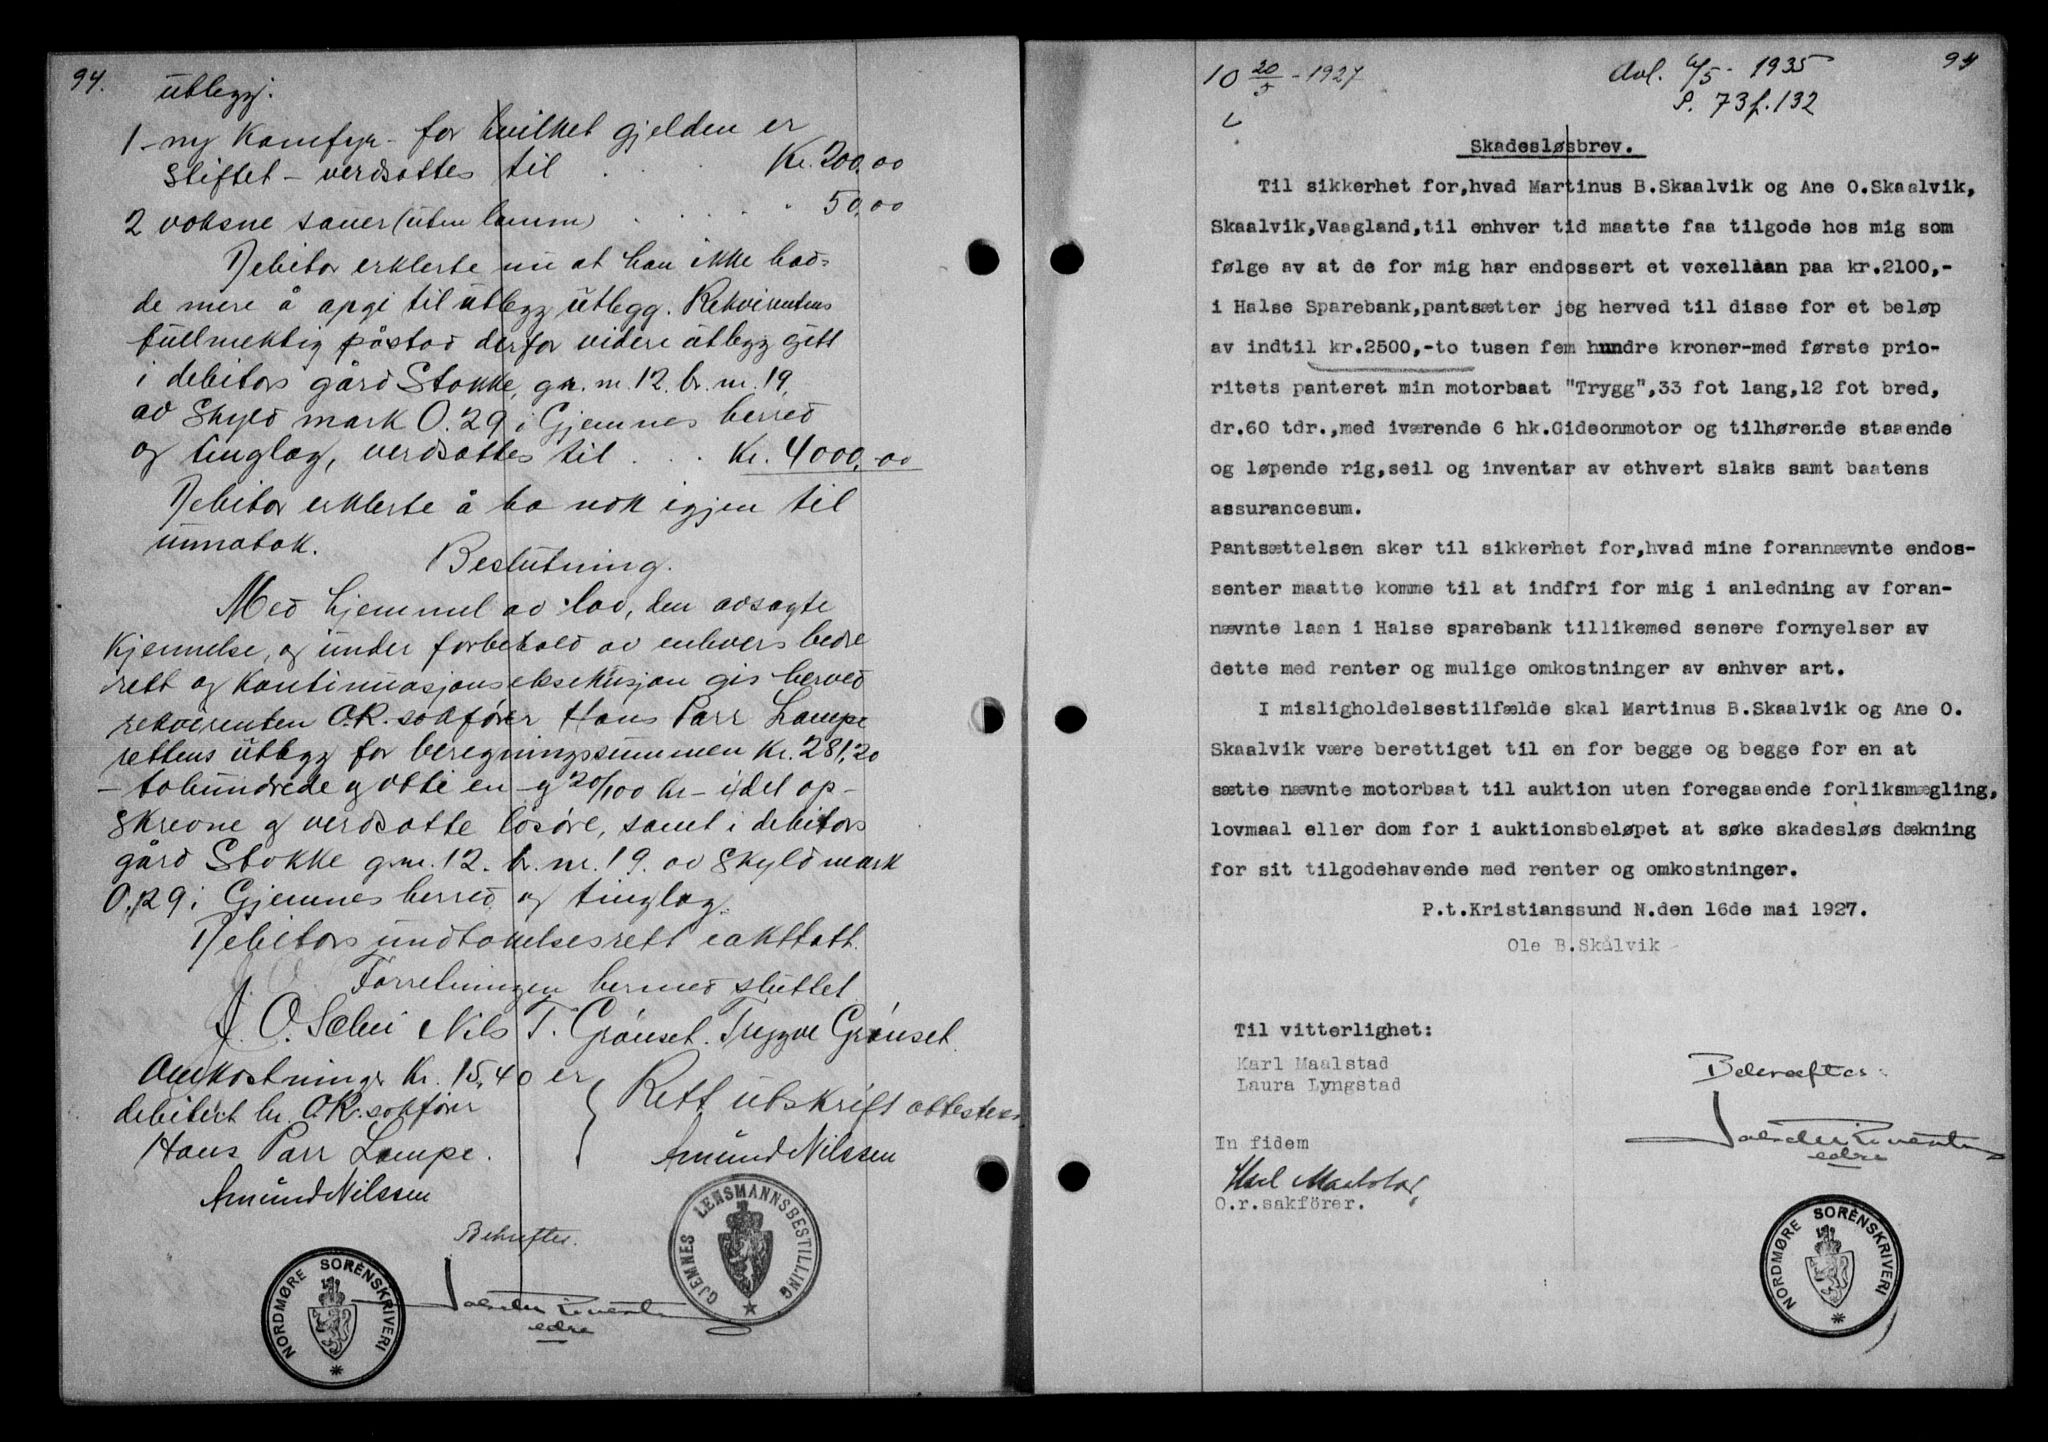 94.
utlegg.
1 - ny Komfyr - for hvilket gjelden er
stiftet - verdsattes til . . Kr. 200,00
2 voksne sauer (uten lamm) . . . . " 50,00
Debitor erklerte nu at han ikke had-
de mere å opgi til utlegg utlegg. Rekvirentens
fullmektig påstod derfor videre utlegg gitt
i debitors gård Stokke, gr. nr. 12. br. nr. 19,
av skyld mark 0.29 i Gjemnes herred
og tinglag, verdsattes til . . Kr. 4000,00
Debitor erklerte å ha nok igjen til
unnatak.
Beslutning.
Med hjemmel av lov, den avsagte
Kjennelse, og under forbehold av enhvers bedre
rett og Kontinuasjonseksekusjon gis herved
rekvirenten O.R. sakfører Hans Parr Lampe
rettens utlegg for beregningssummen Kr. 281,20
- tohundrede og otti en - og 20/100 Kr - i det op-
skrevne og verdsatte løsøre, samt i debitors
gård Stokke g.nr. 12. br. nr. 19. av skyld mark
0.29 i Gjemnes herred og tinglag.
Debitors undtakelsesrett iakttatt.
Forretningen hermed sluttet
J. O. Sæbu Nils T. Grønset. Trygve Grønset.
Omkostninger Kr. 15,40 er
debitert hr. O.R. sakfører
Hans Parr Lampe.
Amund Nilssen
Rett utskrift attesteres
Amund Nilssen
GJEMNES LENSMANNSBESTILLING
Bekreftes.
edre
NORDMØRE SORENSKRIVERI
10 20/5 - 1927
Avl. 6/5 - 1935
P. 73 f. 132
94
Skadesløsbrev.
Til sikkerhet for,hvad Martinus B.Skaalvik og Ane O.Skaalvik,
Skaalvik,Vaagland,til enhver tid maatte faa tilgode hos mig som
følge av at de for mig har endossert et vexellaan paa kr.2100,-
i Halse Sparebank,pantsætter jeg herved til disse for et beløp
av indtil kr.2500,-to tusen fem hundre kroner-med første prio-
ritets panteret min motorbaat "Trygg",33 fot lang,12 fot bred,
dr.60 tdr.,med iværende 6 hk.Gideonmotor og tilhørende staaende
og løpende rig,seil og inventar av ethvert slaks samt baatens
assurancesum.
Pantsættelsen sker til sikkerhet for,hvad mine forannævnte endos-
senter maatte komme til at indfri for mig i anledning av foran-
nævnte laan i Halse sparebank tillikemed senere fornyelser av
dette med renter og mulige omkostninger av enhver art.
I misligholdelsestilfælde skal Martinus B.Skaalvik og Ane O.
Skaalvik være berettiget til en for begge og begge for en at
sætte nævnte motorbaat til auktion uten foregaaende forliksmægling,
lovmaal eller dom for i auktionsbeløpet at søke skadesløs dækning
for sit tilgodehavende med renter og omkostninger.
P.t.Kristianssund N.den 16de mai 1927.
Ole B.Skålvik
Til vitterlighet:
Karl Maalstad
Laura Lyngstad
Bekræftes:
edre
In fidem
Karl Maalstad
O.r.sakförer.
NORDMØRE SORENSKRIVERI